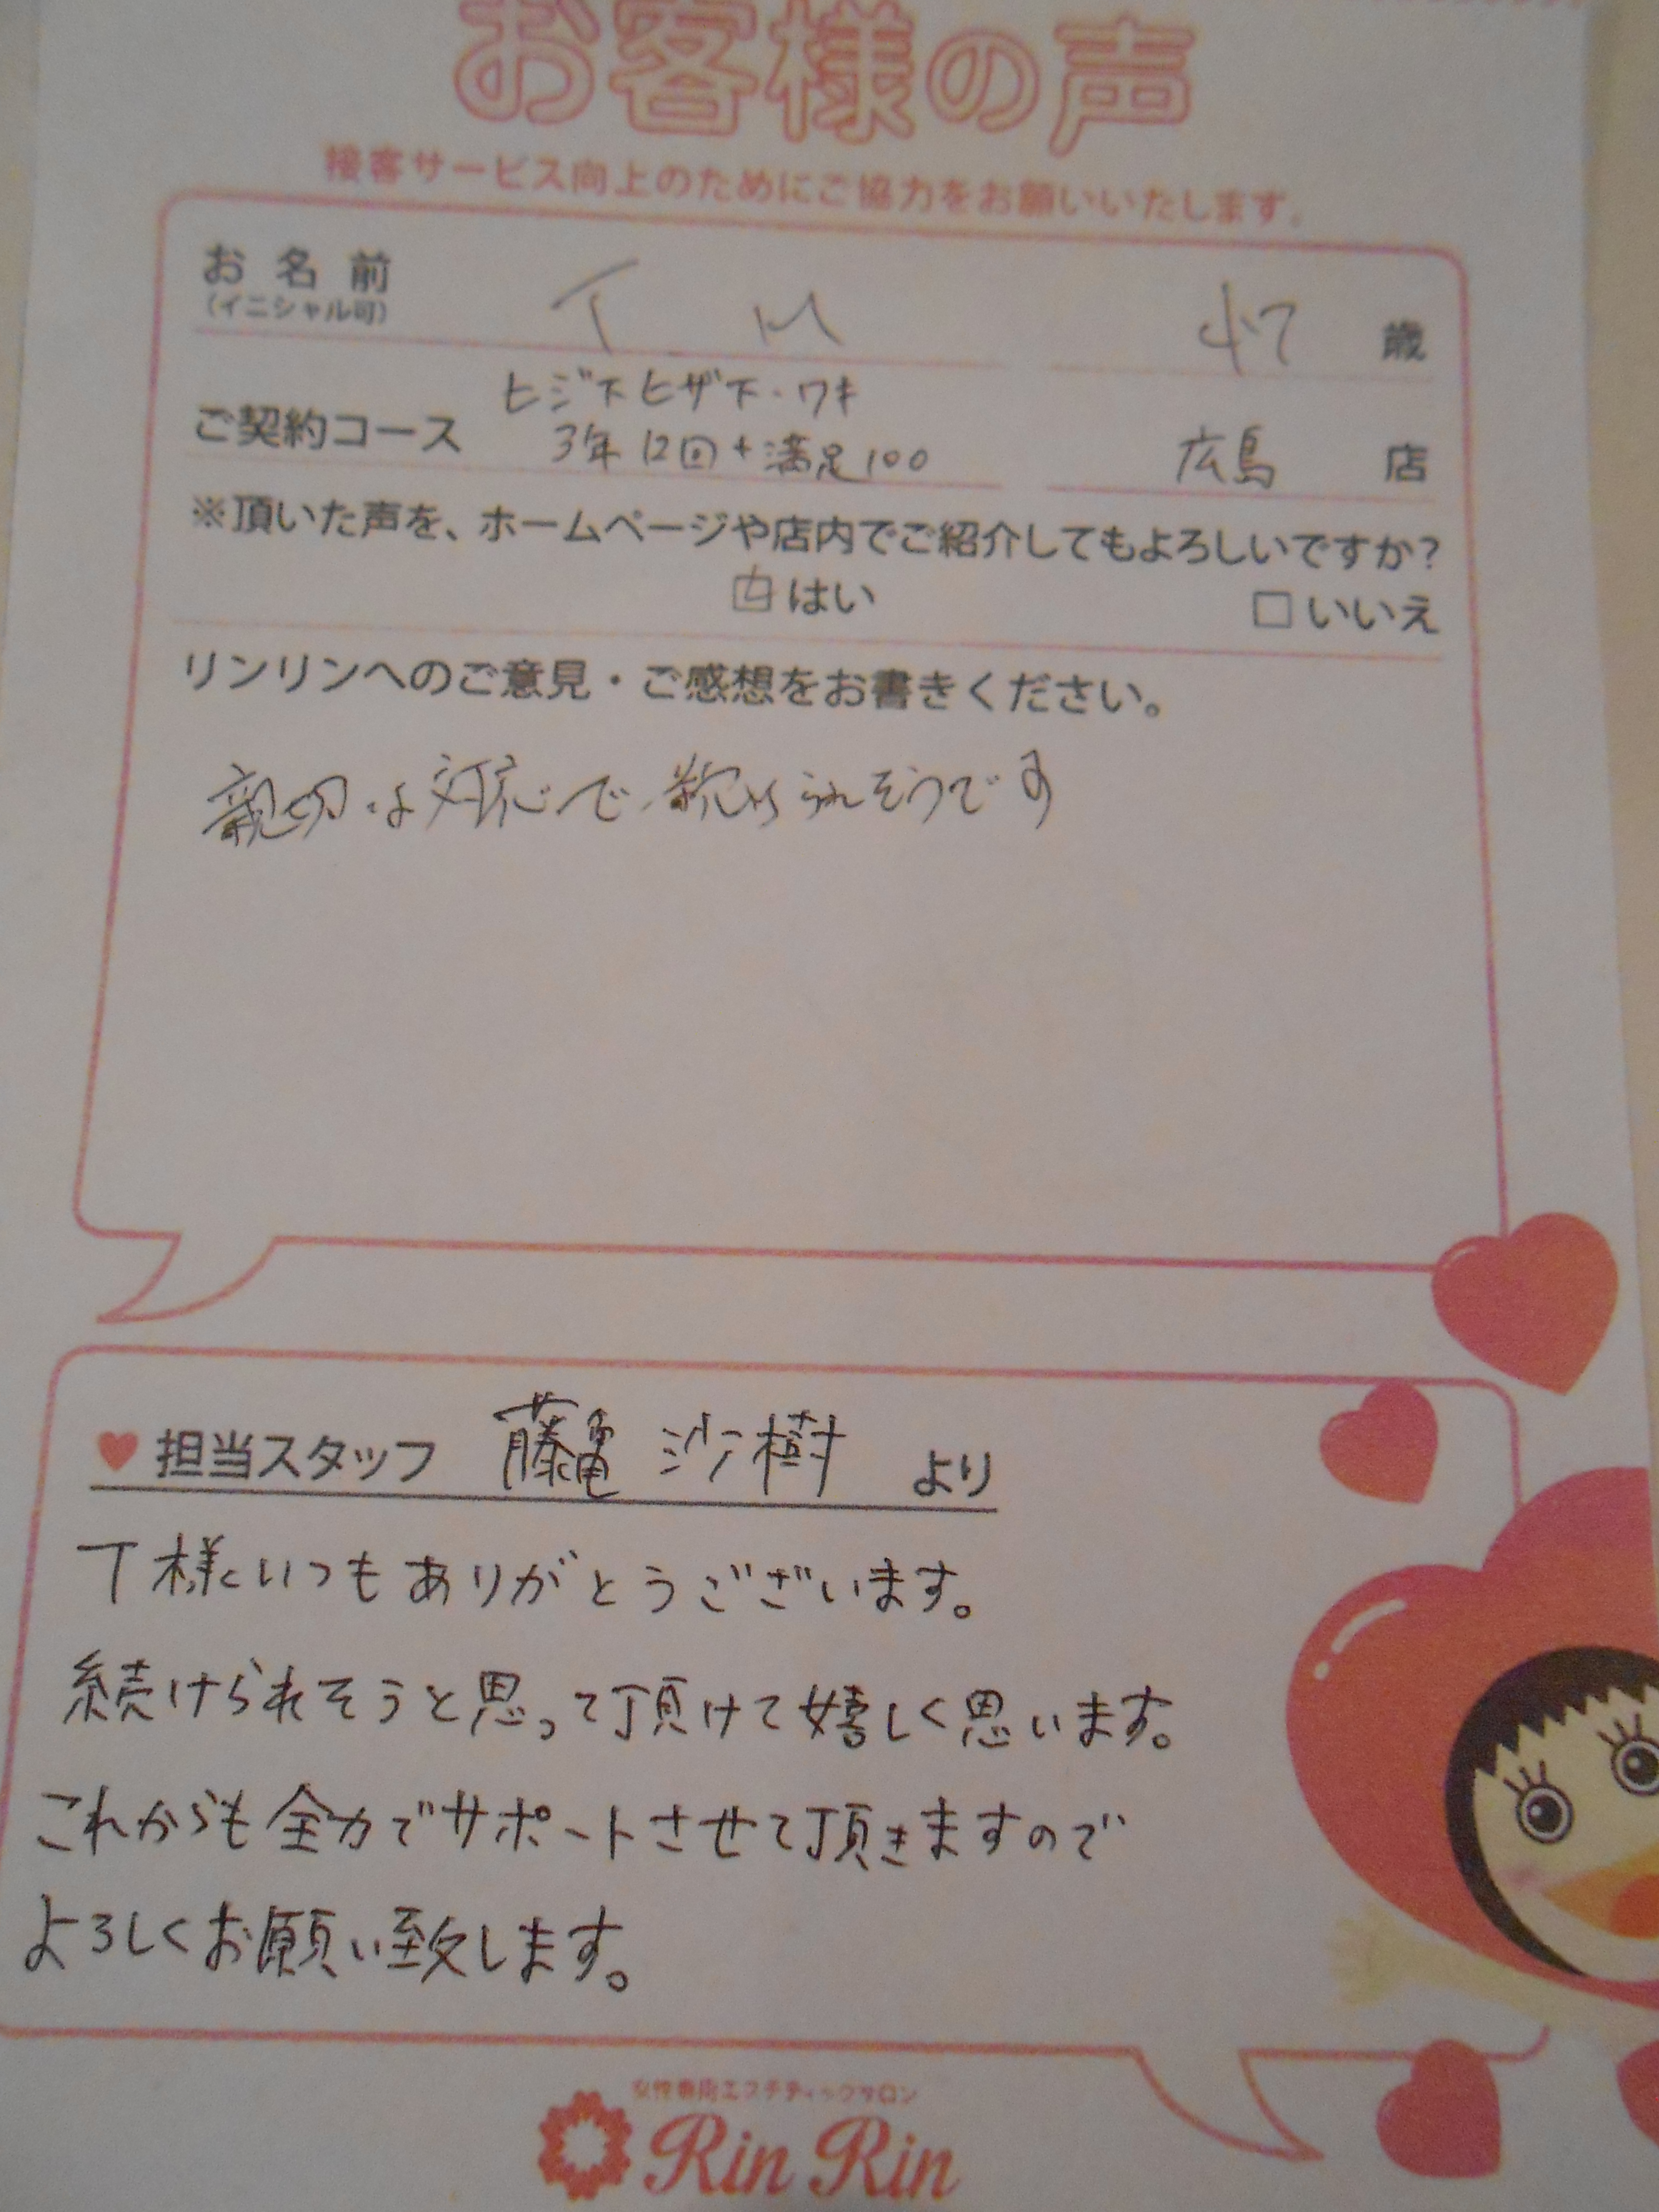 お客様の声
接客サービス向上のためにご協力をお願いいたします。
お名前 T M 47 歳
(イニシャル可)
ヒジ下ヒザ下・ワキ
ご契約コース 3年12回+満足100 広島 店
※頂いた声を、ホームページや店内でご紹介してもよろしいですか?
はい いいえ
リンリンへのご意見・ご感想をお書きください。
親切な対応で、続けられそうです
担当スタッフ 藤亀 沙樹 より
T様いつもありがとうございます。
続けられそうと思って頂けて嬉しく思います。
これからも全力でサポートさせて頂きますので
よろしくお願い致します。
女性専用エステティックサロン
Rin Rin